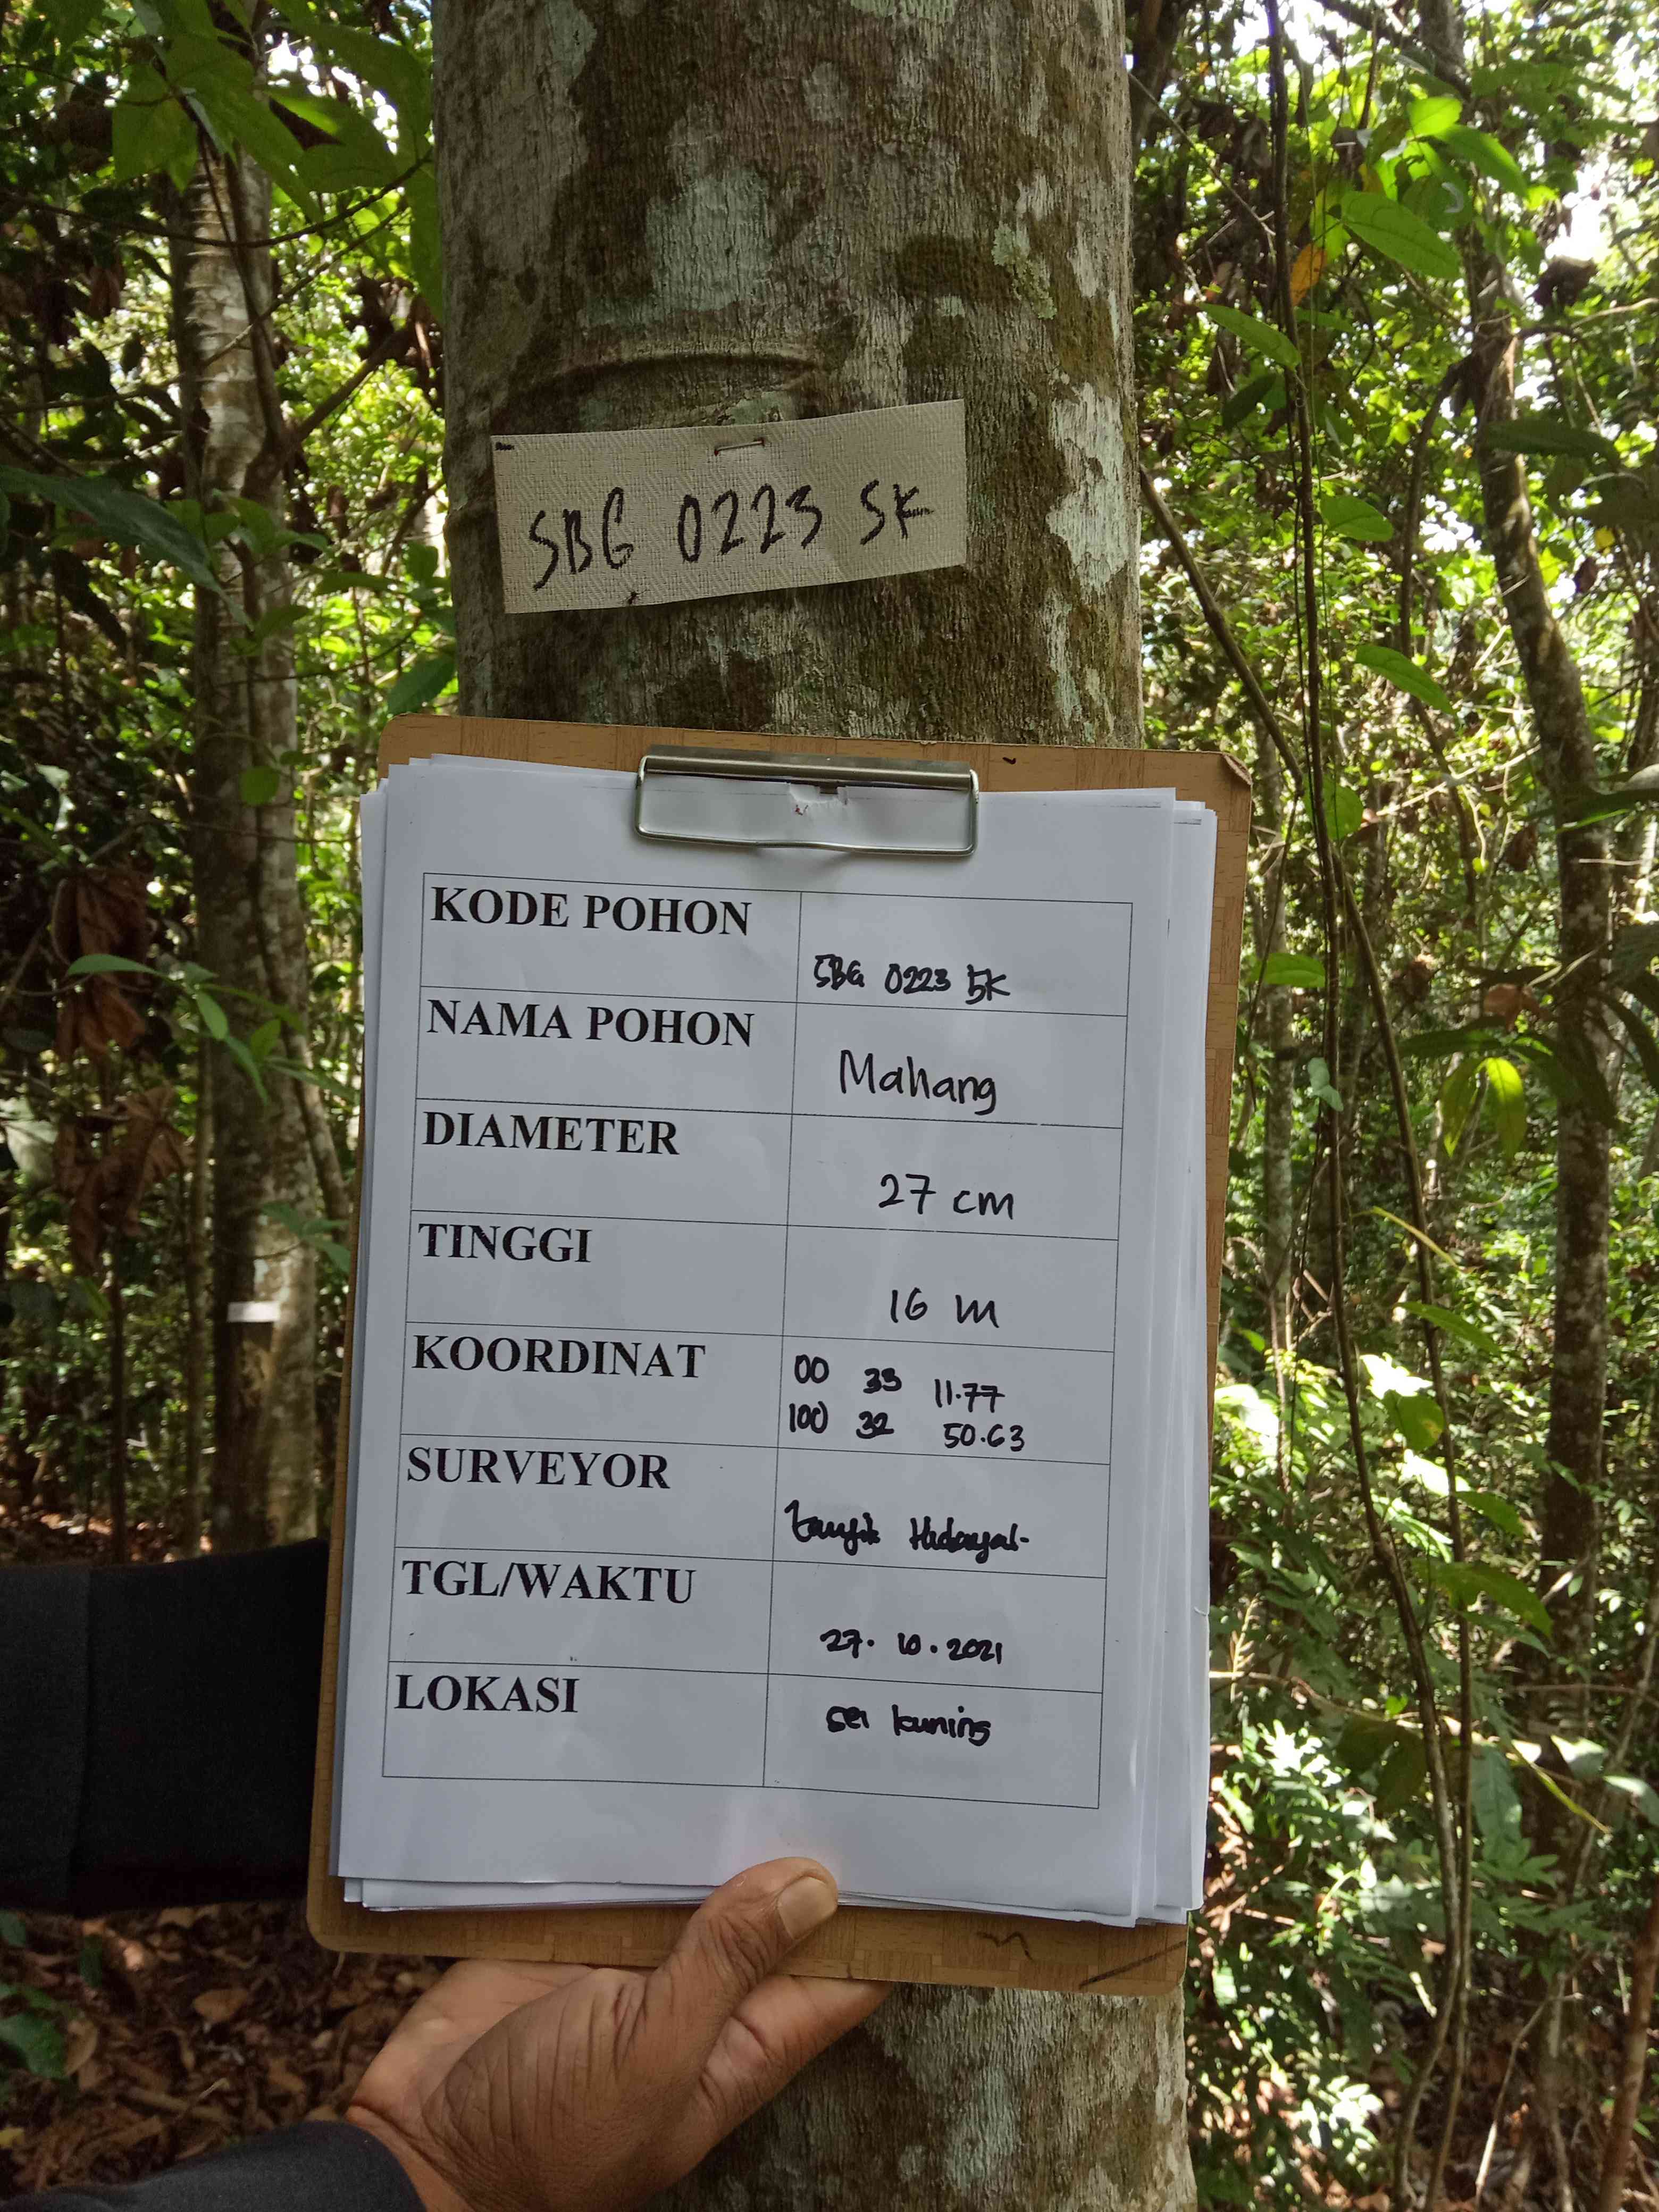 SBG 0223 SK
KODE POHON
SBG 0223 SK
NAMA POHON
Mahang
DIAMETER
27 cm
TINGGI
16 m
KOORDINAT
00 33 11.77
100 32 50.63
SURVEYOR
Taufik Hidayat
TGL/WAKTU
27. 10. 2021
LOKASI
Sei kuning